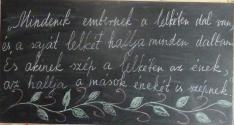 „Mindenik embernek a lelkében dal van,
és a saját lelkét hallja minden dalban.
És akinek szép a lelkében az ének,
az hallja a mások énekét is szépnek.”